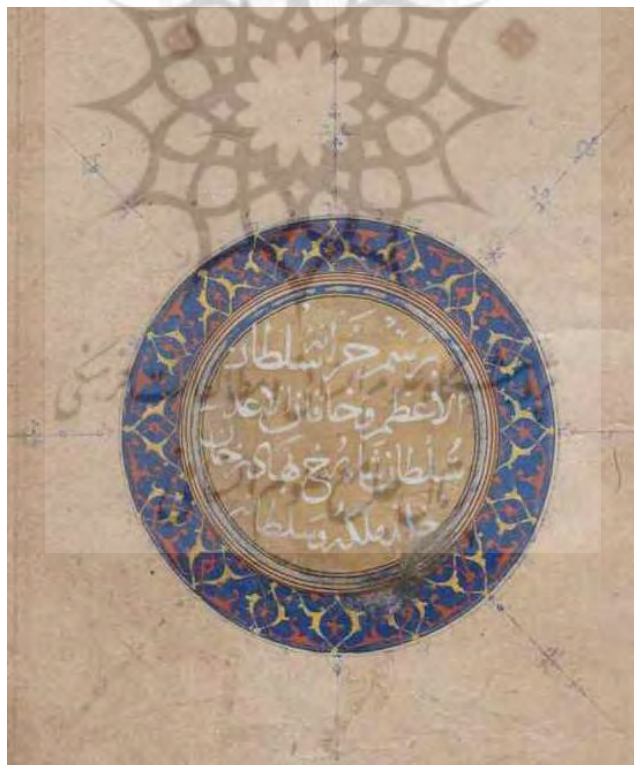 برسم خزانه سلطان
الأعظم وخاقان الاعدل
سلطان شاه رخ بهادر خان
خلد ملكه وسلطانه